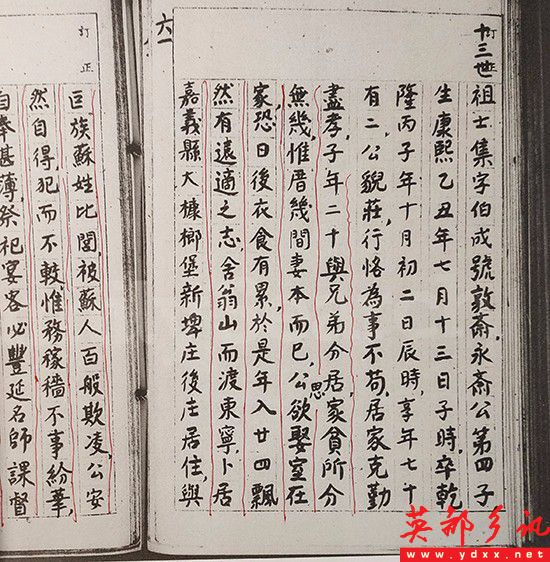 訂正
十三世祖士集字伯成號敦齋永齋公第四子
生康熙乙丑年七月十三日子時卒乾
隆丙子年十月初二日辰時,享年七十
有二公貌莊,行恪為事不苟,居家克勤
盡孝,子年二十與兄弟分居,家貧所分
思
無幾惟厝幾間妻本而已,公欲娶室在
家,恐日後衣食有累,於是年入廿四飄
然有遠適之志舍翁山而渡東寧卜居
嘉義縣大槺榔堡新埤庄後庄居住,與
六一
訂正
巨族蘇姓比閭,被蘇人百般欺凌,公安
然自得,犯而不較,惟務稼穡不事紛華,
自奉甚薄,祭祀宴客必豐延名師課督
英都乡讯
www.ydxx.net